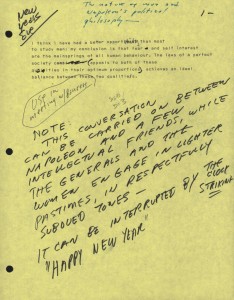 NEW YEARS EVE
The nature of man and
Napoleon's political
philosophy —
1 -
I think I have had a safer opportunity than most
to study man; my conclusion is that fear and self interest
are the mainsprings of all human behaviour. The laws of a perfect
society appears to both of these
in their natural proportions achieves an ideal
balance between these two qualities.
USE IN
MEETING W/
NOTE
THIS CONVERSATION
CAN BE CARRIED ON BETWEEN
NAPOLEON AND A FEW,
INTELLECTUAL FRIENDS, WHILE
THE GENERALS AND THE
WOMEN ENGAGE IN LIGHTER
PASTIMES, IN RESPECTFULLY
SUBDUED TONES —
IT CAN BE INTERRUPTED BY THE CLOCK STRIKING
"HAPPY NEW YEAR"